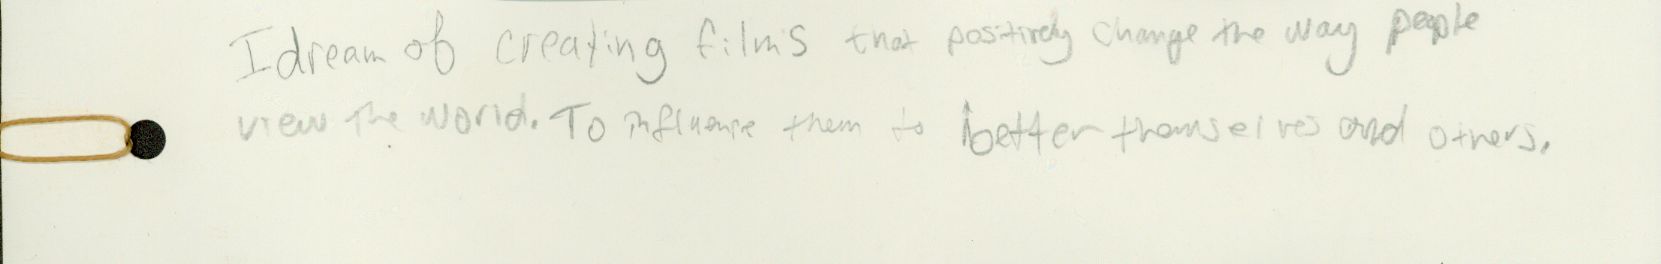 I dream of creating films that positively change the way people
view the world. To influence them to better themselves and others.